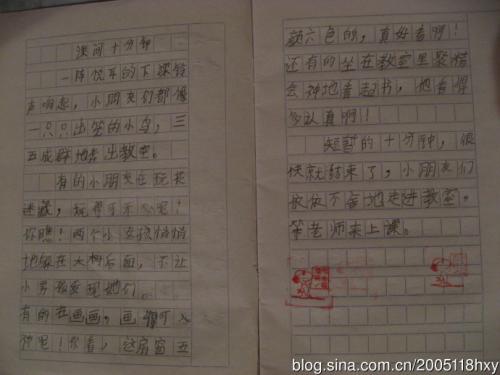 课间十分钟
一阵悦耳的下课铃
声响起，小朋友们都像
一只只出笼的小鸟，三
五成群地奔出教室。
有的小朋友在玩捉
迷藏，玩得可开心呢！
你瞧！两个小女孩悄悄
地躲在大树后面，不让
小男孩发现她们。
有的在画画，画得可入
神呢！你看，这房窗五
颜六色的，真好看啊！
还有的坐在教室里聚精
会神地看起书，他看得
多认真啊！
短暂的十分钟，很
快就结束了，小朋友们
依依不舍地走进教室。
等老师来上课。
blog.sina.com.cn/2005118hxy